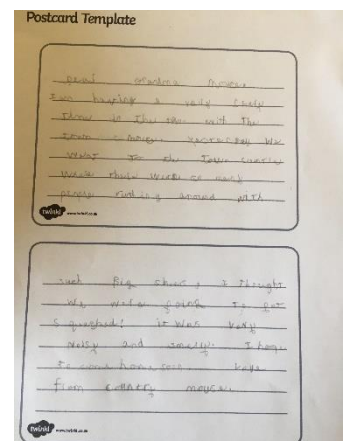 Postcard Template
Dear Grandma mouse,
I am having a really
time in the town with the
town mouse. yesterday we
went to the town centre
were there were so many
people rushing around with
twinkl www.twinkl.co.uk
such Big shoes, I thought
we were going to get
squashed! it was very
noisy and smelly. I hope
to come home soon. Love
from country mouse.
twinkl www.twinkl.co.uk